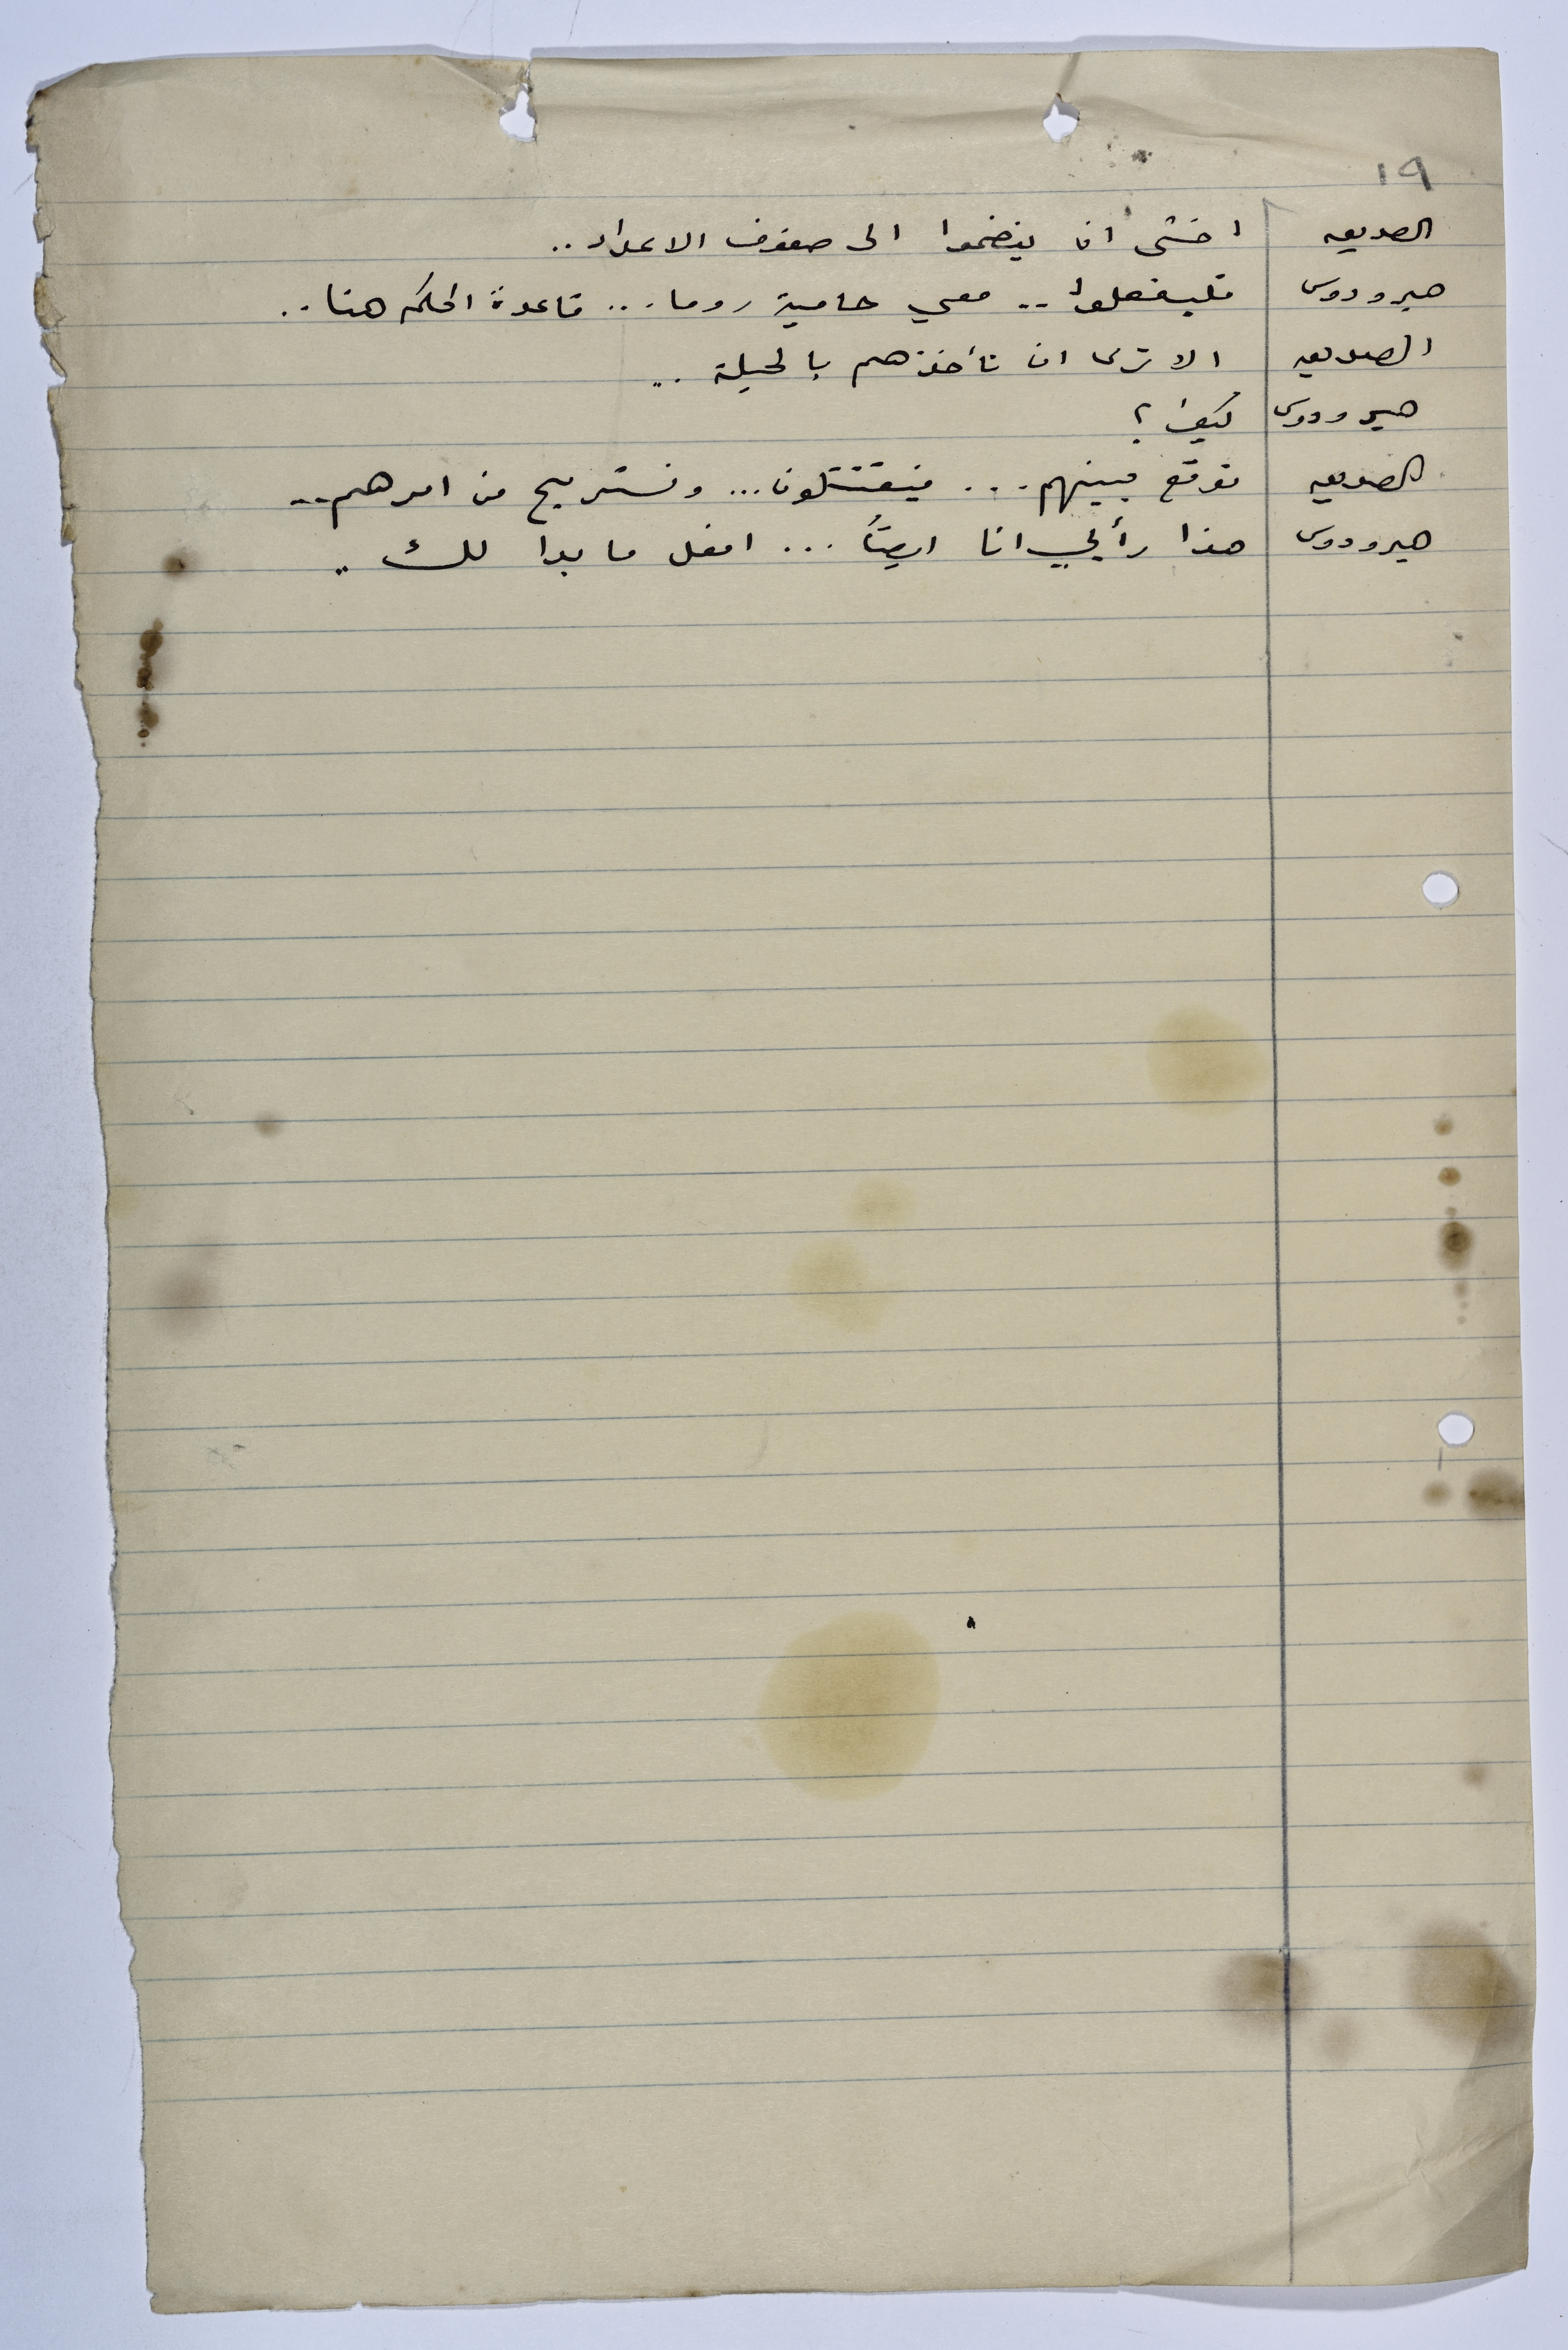 ١٩
الصديق اخشى ان ينضموا الى صفوف الاعداء ..
هيرودوس فليفعلوا .. معي حامية روما ... قاعدة الحكم هنا ..
الصديق الا ترى ان تأخذهم بالحيلة ..
هيرودوس كيف ؟
الصديق نوقع بينهم ... فيقتتلون ... ونستريح من امرهم ..
هيرودوس هذا رأيي انا ايضاً ... افعل ما بدا لك ..